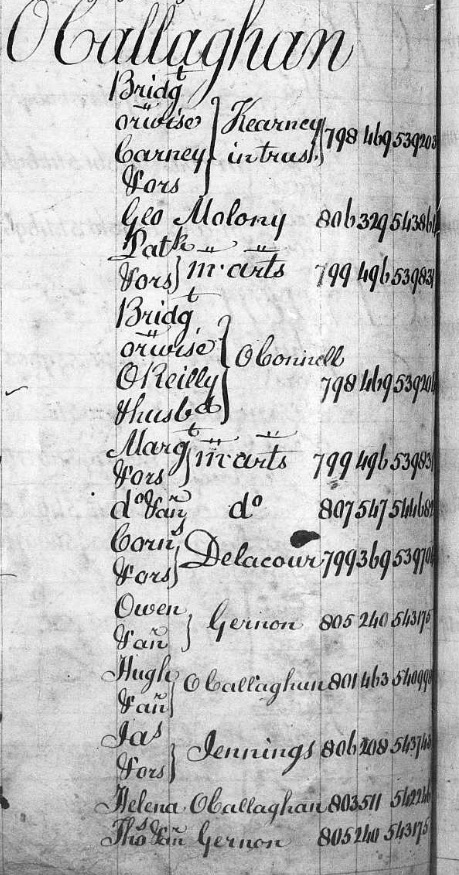 O'Callaghan
Bridgt
orwise } Kearney
Carney in trust 798 469 539203
& ors
Geo Molony 806 329 54386
Patk
& ors } m'arts 799 496 53983
Bridgt
orwise } O'Connell
O'Reilly 798 469 53920
& husbd
Margt
& ors } m'arts 799 496 53983
do & anr do 807 547 54468
Corns
& ors } Delacour 799 369 53970
Owen
& anr } Gernon 805 240 543175
Hugh
& anr } O'Callaghan 801 463 54099
Jas
& ors } Jennings 806 208 54374
Helena O'Callaghan 803 511 54224
Thos & anr Gernon 805 240 543175